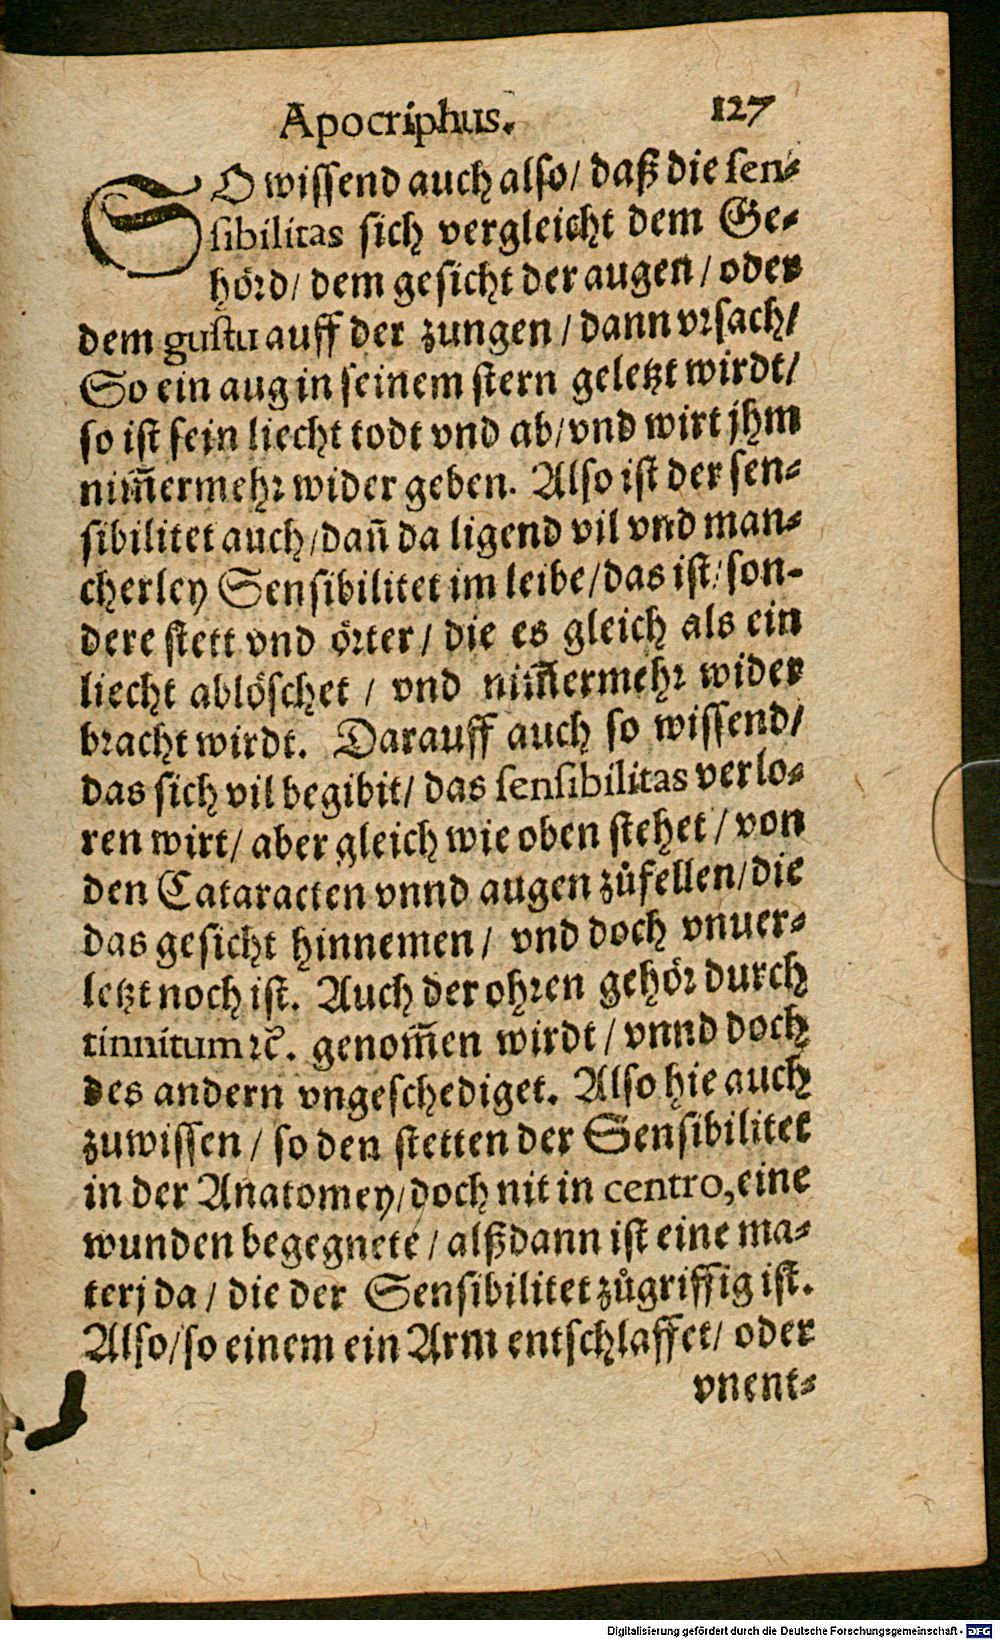 Apocriphus. 127
SO wissend auch also/ daß die sen-
sibilitas sich vergleicht dem Ge-
hörd/ dem gesicht der augen/ oder
dem gustu auff der zungen/ dann vrsach/
So ein aug in seinem stern geletzt wirdt/
so ist sein liecht todt vnd ab/ vnd wirt jhm
nim̃ermehr wider geben. Also ist der sen-
sibilitet auch/ dañ da ligend vil vnd man-
cherley Sensibilitet im leibe/ das ist/ son-
dere stett vnd örter/ die es gleich als ein
liecht ablöschet/ vnd nim̃ermehr wider
bracht wirdt. Darauff auch so wissend/
das sich vil begibit/ das sensibilitas verlo-
ren wirt/ aber gleich wie oben stehet/ von
den Cataracten vnnd augen zůfellen/ die
das gesicht hinnemen/ vnd doch vnuer-
letzt noch ist. Auch der ohren gehör durch
tinnitum ꝛc̃. genom̃en wirdt/ vnnd doch
des andern vngeschediget. Also hie auch
zuwissen/ so den stetten der Sensibilitet
in der Anatomey/ doch nit in centro, eine
wunden begegnete/ alßdann ist eine ma-
terj da/ die der Sensibilitet zůgriffig ist.
Also/ so einem ein Arm entschlaffet/ oder
vnent-
Digitalisierung gefördert durch die Deutsche Forschungsgemeinschaft - DFG